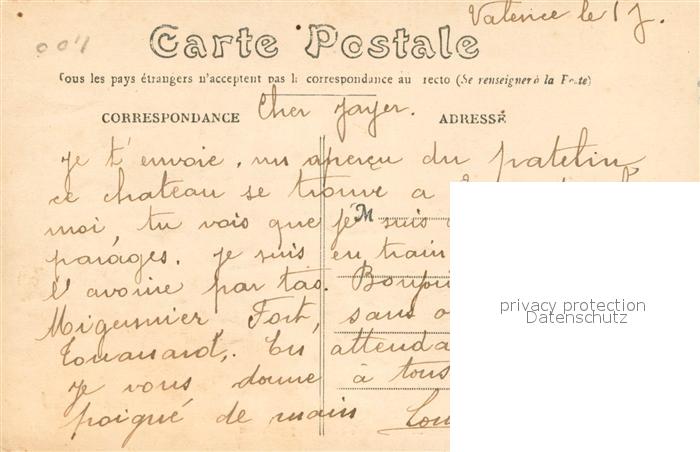 Valence le 1 J.
00'1
Carte Postale
Tous les pays étrangers n'acceptent pas la correspondance au recto (Se renseigner à la Poste)
CORRESPONDANCE
ADRESSE
Cher Jayer.
je t'envoie, un aperçu du patelin,
ce chateau se trouve a
moi, tu vois que je suis
M
parages. je suis en train
l'avoine par tas. Bonjour
Migusnier, Fort, sans
Touanard,. En attenda
je vous donne à tous
poigné de main Lou
privacy protection
Datenschutz